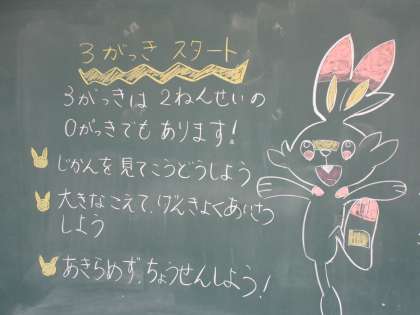 3がっき スタート
3がっきは2ねんせいの
0がっきでもあります!
じかんを見てこうどうしよう
大きなこえで、げんきよくあいさつ
しよう
あきらめず、ちょうせんしよう!